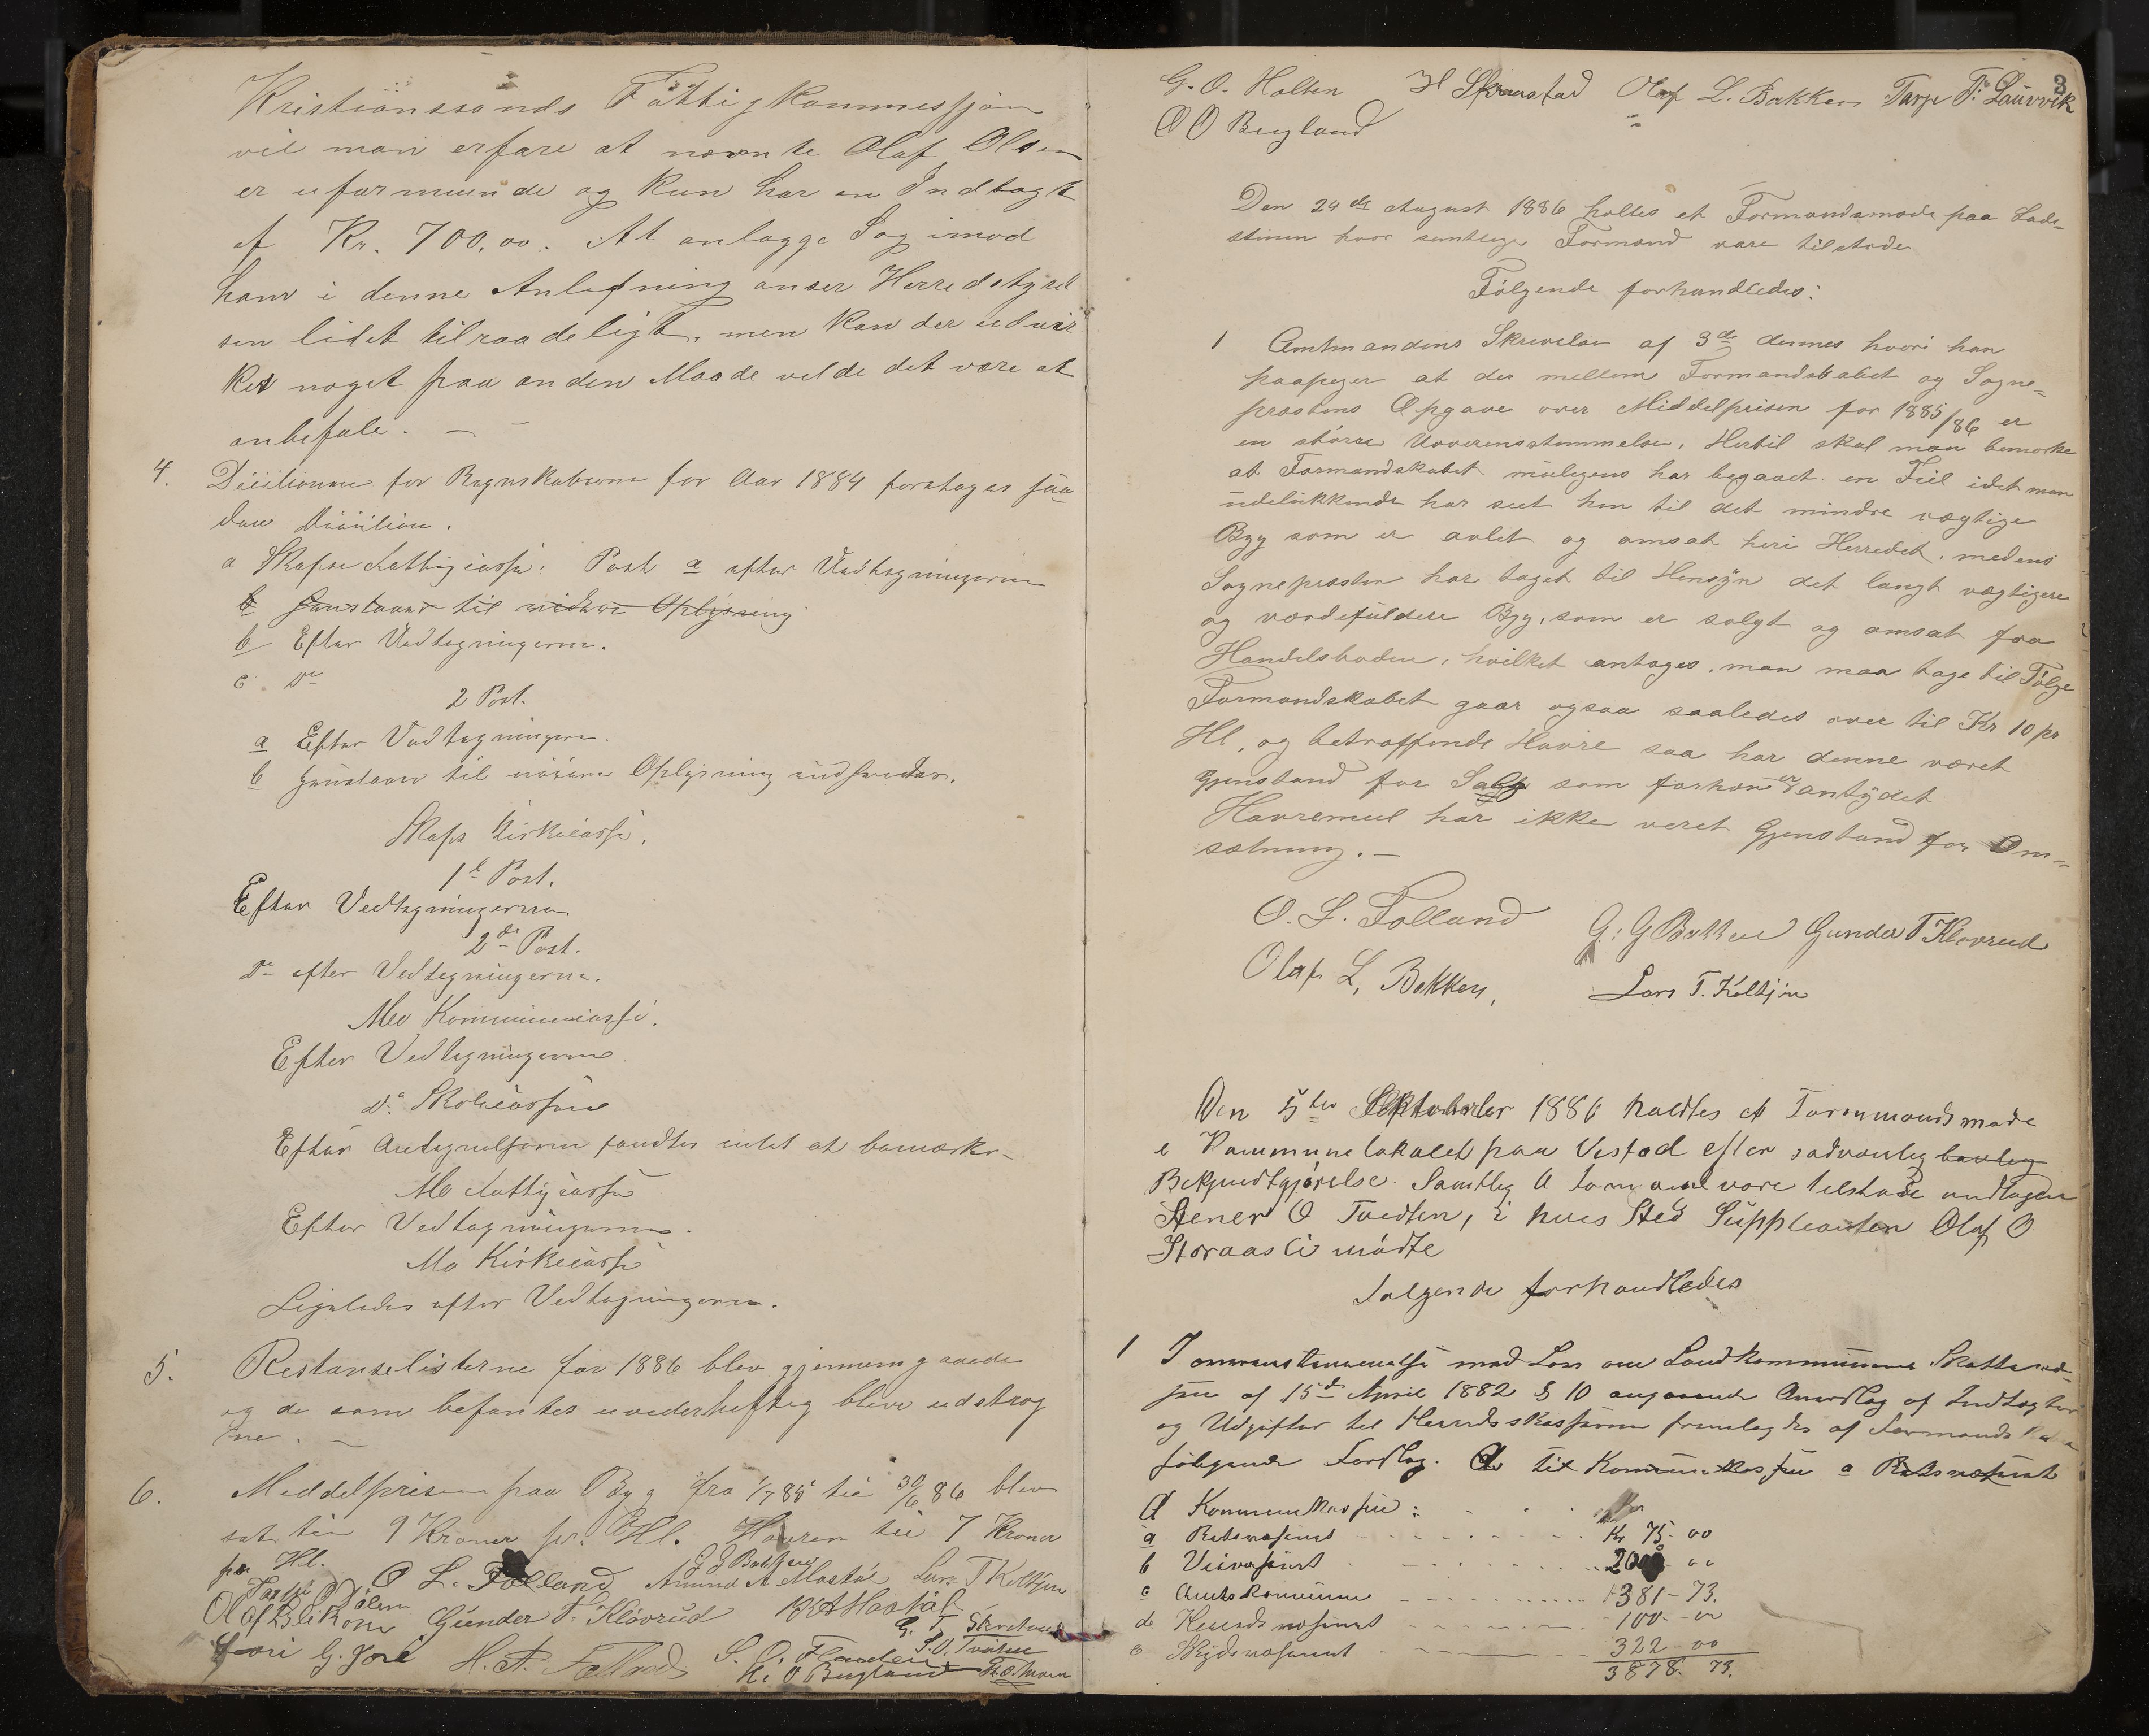 Kristianssands Fattigkommessjon
vil man erfare at nævnte Olaf Olsen
er uformuende og kun har en Indtægt
af Kr. 700,00. At anlægge Sag imod
ham i denne Anledning anser Herredstyrel
sen lidet tilraadeligt, men kan der udvir
kes noget paa anden Maade vilde det være at
anbefale. —
4. Decisionen for Regnskaberne for Aar 1884 foretages saa
dan Decision.
a Skafse Fattigcasse: Post a efter Vedtegningerne
b Gjenstaar til videre Oplysning
b Efter Vedtegningerne.
c Do
2 Post.
a Efter Vedtegningerne.
b Gjenstaar til nöiere Oplysning indhentes.
Skafse Kirkecasse.
1te Post.
Efter Vedtegningerne.
2den Post.
Do efter Vedtegningerne.
Mo Kommunecasse.
Efter Vedtegningerne
Do Skolecassen
Efter Antegnelserne fandtes intet at bemærke
Mo Fattigcasse
Efter Vedtegningerne.
Mo Kirkecasse
Ligeledes efter Vedtegningerne.
5. Restanselisterne for 1886 blev gjennemgaaede
og de som befantes uvederheftig bleve udstrøg
ne. —
6. Meddelprisen paa Byg fra 1/7 85 til 30/6 86 blev
sat til 9 Kroner pr. Hl. Havren til 7 Kroner
pr Hl. O L. Folland G G Bakken Amund A Mostøl Lars T Koltjøn
Gunder T. Klovrud
H. A. Folland O O Bergland
3
G. O. Holten H Skravstad Olaf L. Bakken Tarje T. Lauvvik
O O Bergland
Den 24de August 1886 holtes et Formandsmøde paa Lade-
stinen hvor samtlige Formænd vare tilstæde
Følgende forhandledes:
1 Amtmandens Skrivelse af 3de dennes hvori han
paapeger at der mellem Formandskabet og Sogne-
præstens Opgave over Middelprisen for 1885/86 er
en større Uoverensstemmelse. Hertil skal man bemærke
at Formandskabet muligens har begaaet en Feil idet man
udelukkende har seet hen til det mindre vægtige
Byg som er avlet og omsat heri Herredet, medens
Sognepræsten har taget til Hensyn det langt vægtigere
og værdefuldere Byg, som er solgt og omsat fra
Handelsboden, hvilket antages, man maa tage til Følge
Formandskabet gaar ogsaa saaledes over til Kr 10 pr
Hl, og betræffende Havre saa har denne været
Gjenstand for Salg som forhen er antydet
Havremeel har ikke veret Gjenstand for Om-
sætning. —
O. L. Folland G. G Bakken Gunder T Klovrud
Olaf L, Bakken, Lars T. Koltjøn
Den 5te Oktober 1886 holdtes et Formandsmøde
i Kommunelokalet paa Vistad efter sædvanlig
Bekjendtgjørelse. Samtlig Formænd vare tilstæde undtagen
Stener O Tvedten, i hvis Sted Suppleanten Olaf O
Storaasli mødte
Følgende forhandledes
1 I overensstemmelse med Lov om Landkommunens Skattevæ-
sen af 15de April 1882 § 10 angaaende Overslag af Indtægter
og Udgifter til Herredskassen fremlagdes af Formandskabet
følgende Forslag. A til Kommunekassen a Retsvæsenet
A Kommunekassen:
a Retsvæsenet Kr 75-00
b Veivæsenet 2000-00
c Amtskommunen 1381-73.
d Herredsvæsenet 100-00
e Skydsvæsenet 322-00
3878-73.